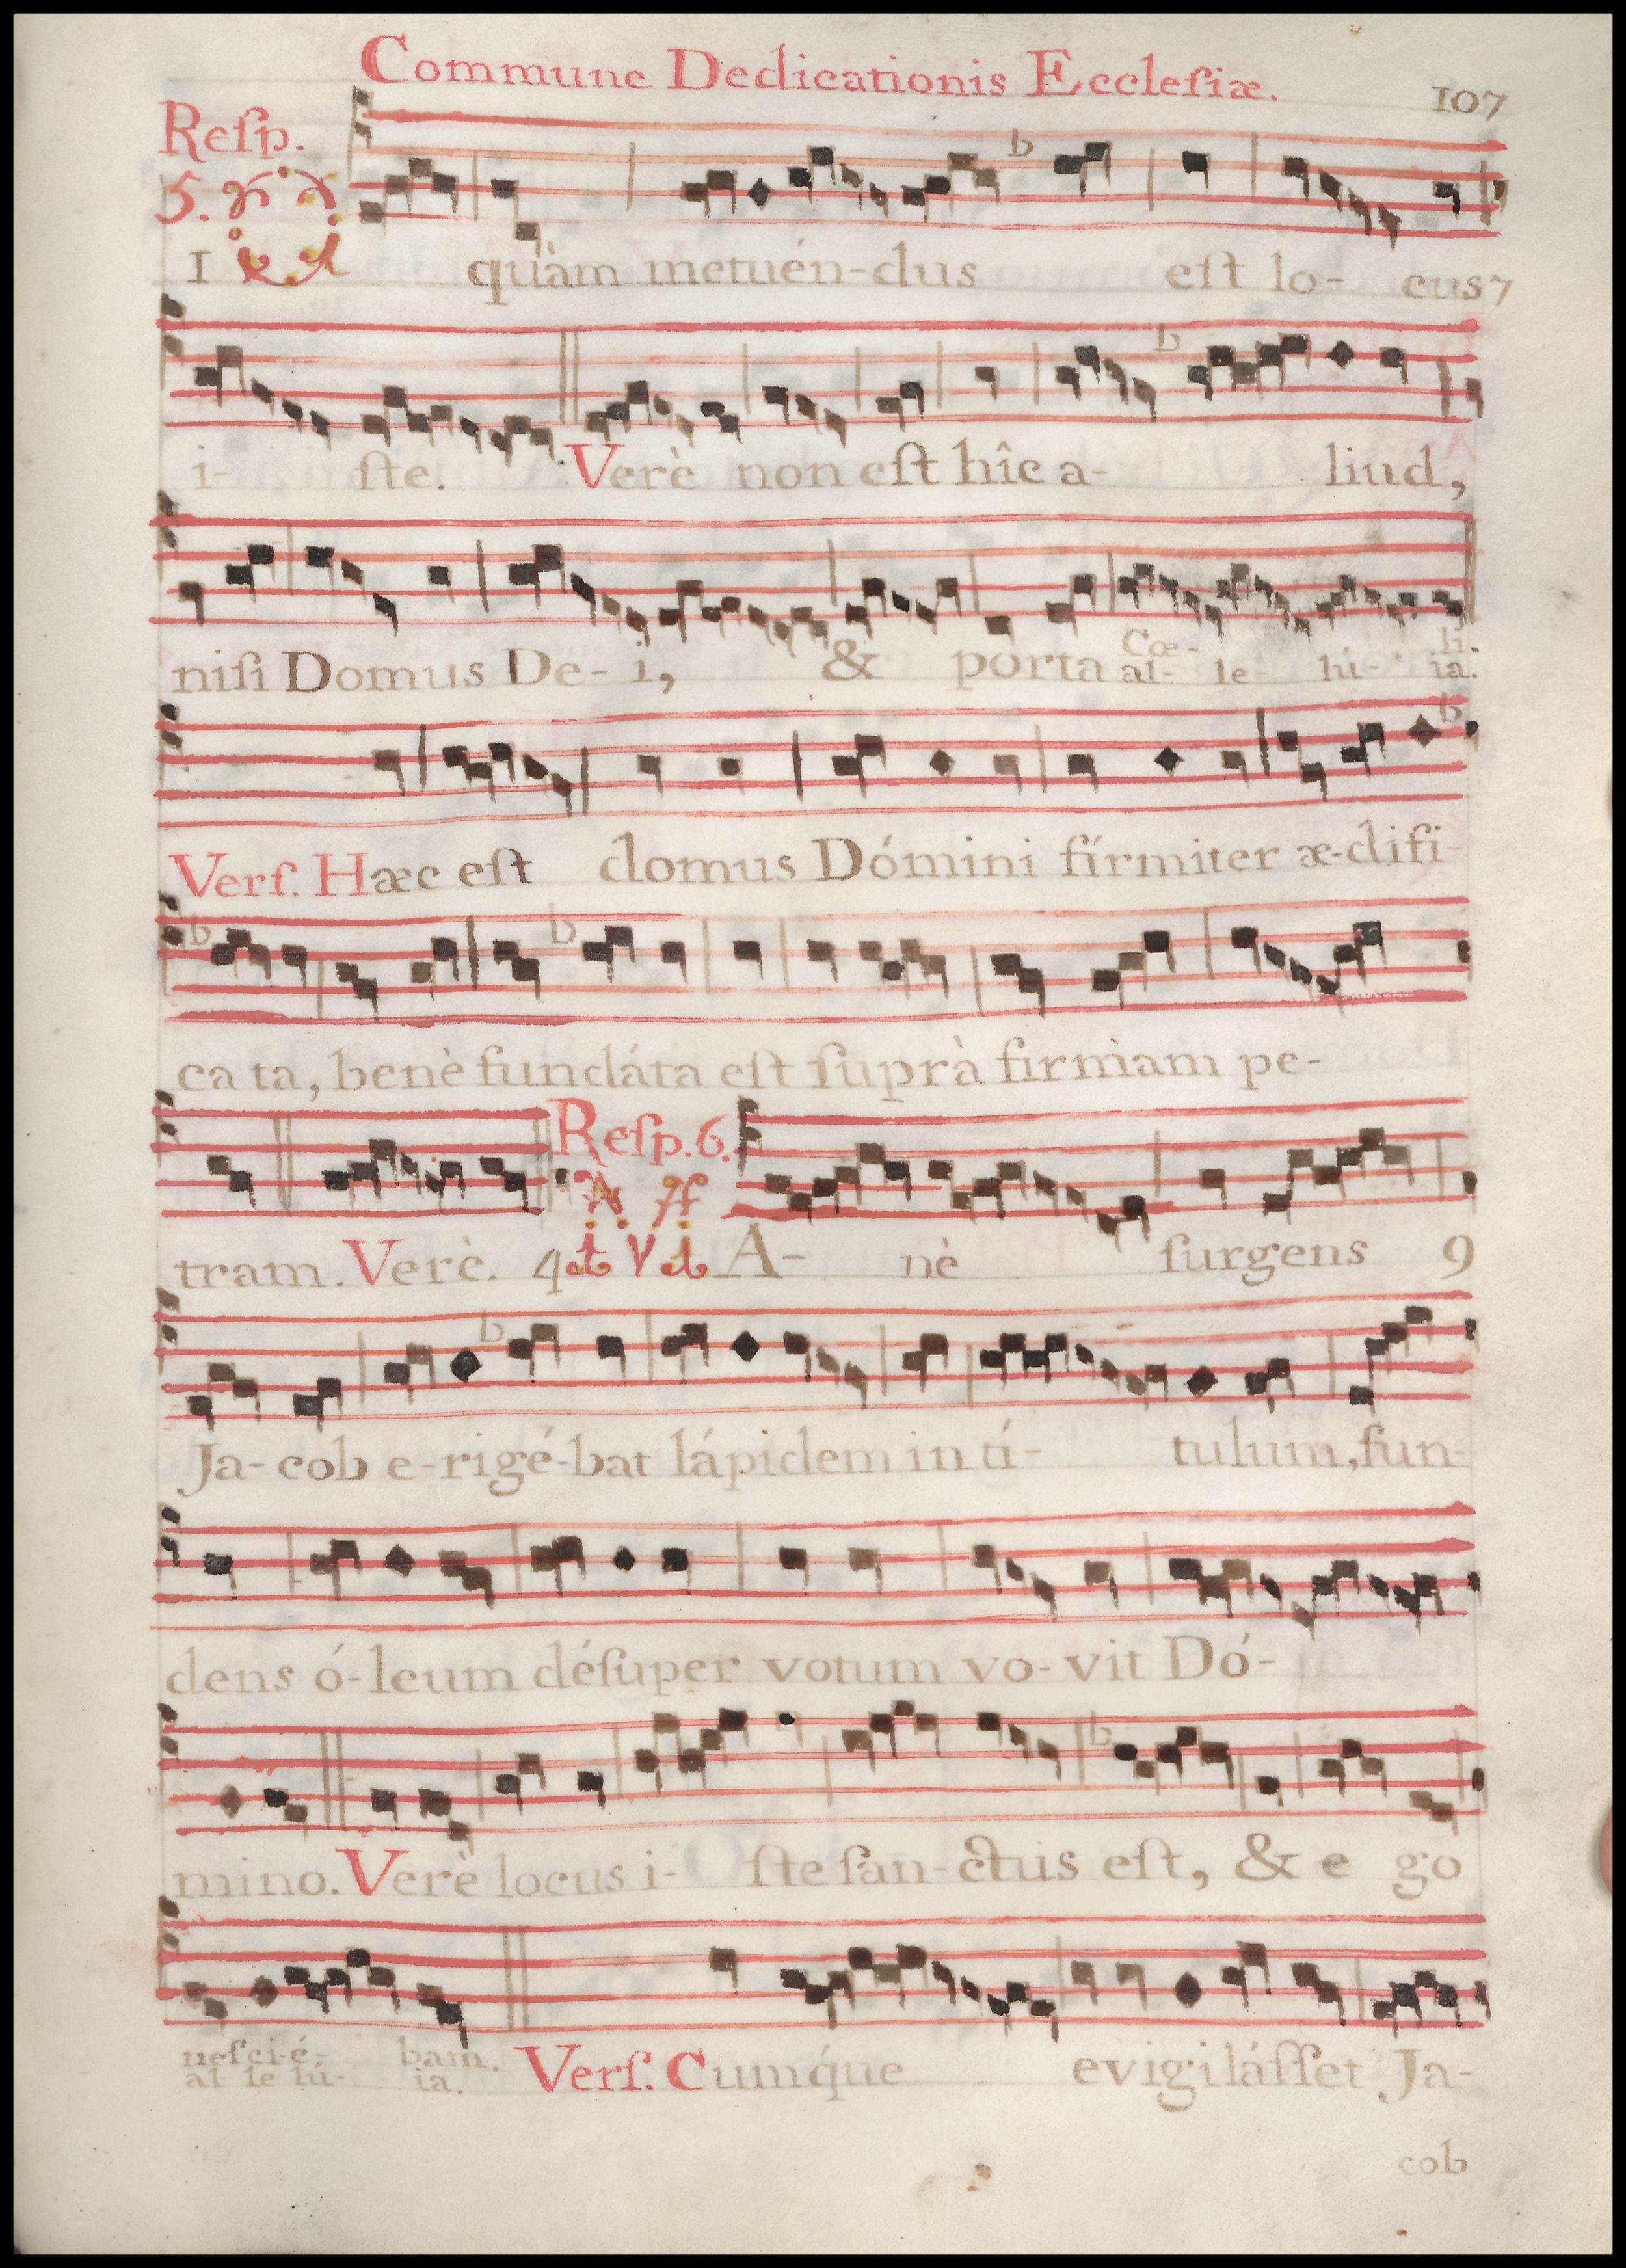 Commune Dedicationis Eccleſiæ. 107
Reſp.
5. O
1 quàm metuén-dus eſt lo- cus 7
i- ſte. Verè non eſt hîc a- liud,
niſi Domus De- i, & porta Cœ- li.
al- le- lú- ia.
Verſ. Hæc eſt domus Dómini fírmiter æ-difi
ca ta, benè fundáta eſt ſuprà firmam pe-
Reſp. 6.
tram. Verè. 4 M A- nè ſurgens 9
Ja- cob e-rigé-bat lápidem in tí- tulum, fun-
dens ó-leum déſuper votum vo- vit Dó-
mino. Verè locus i- ſte ſan-ctus eſt, & e go
neſci-é- bam. Verſ. Cumq́ue evigiláſſet Ja-
al le lú- ia.
cob